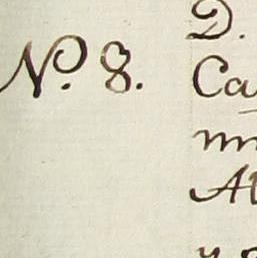 Nº. 8.
D.
Ca
m
Al